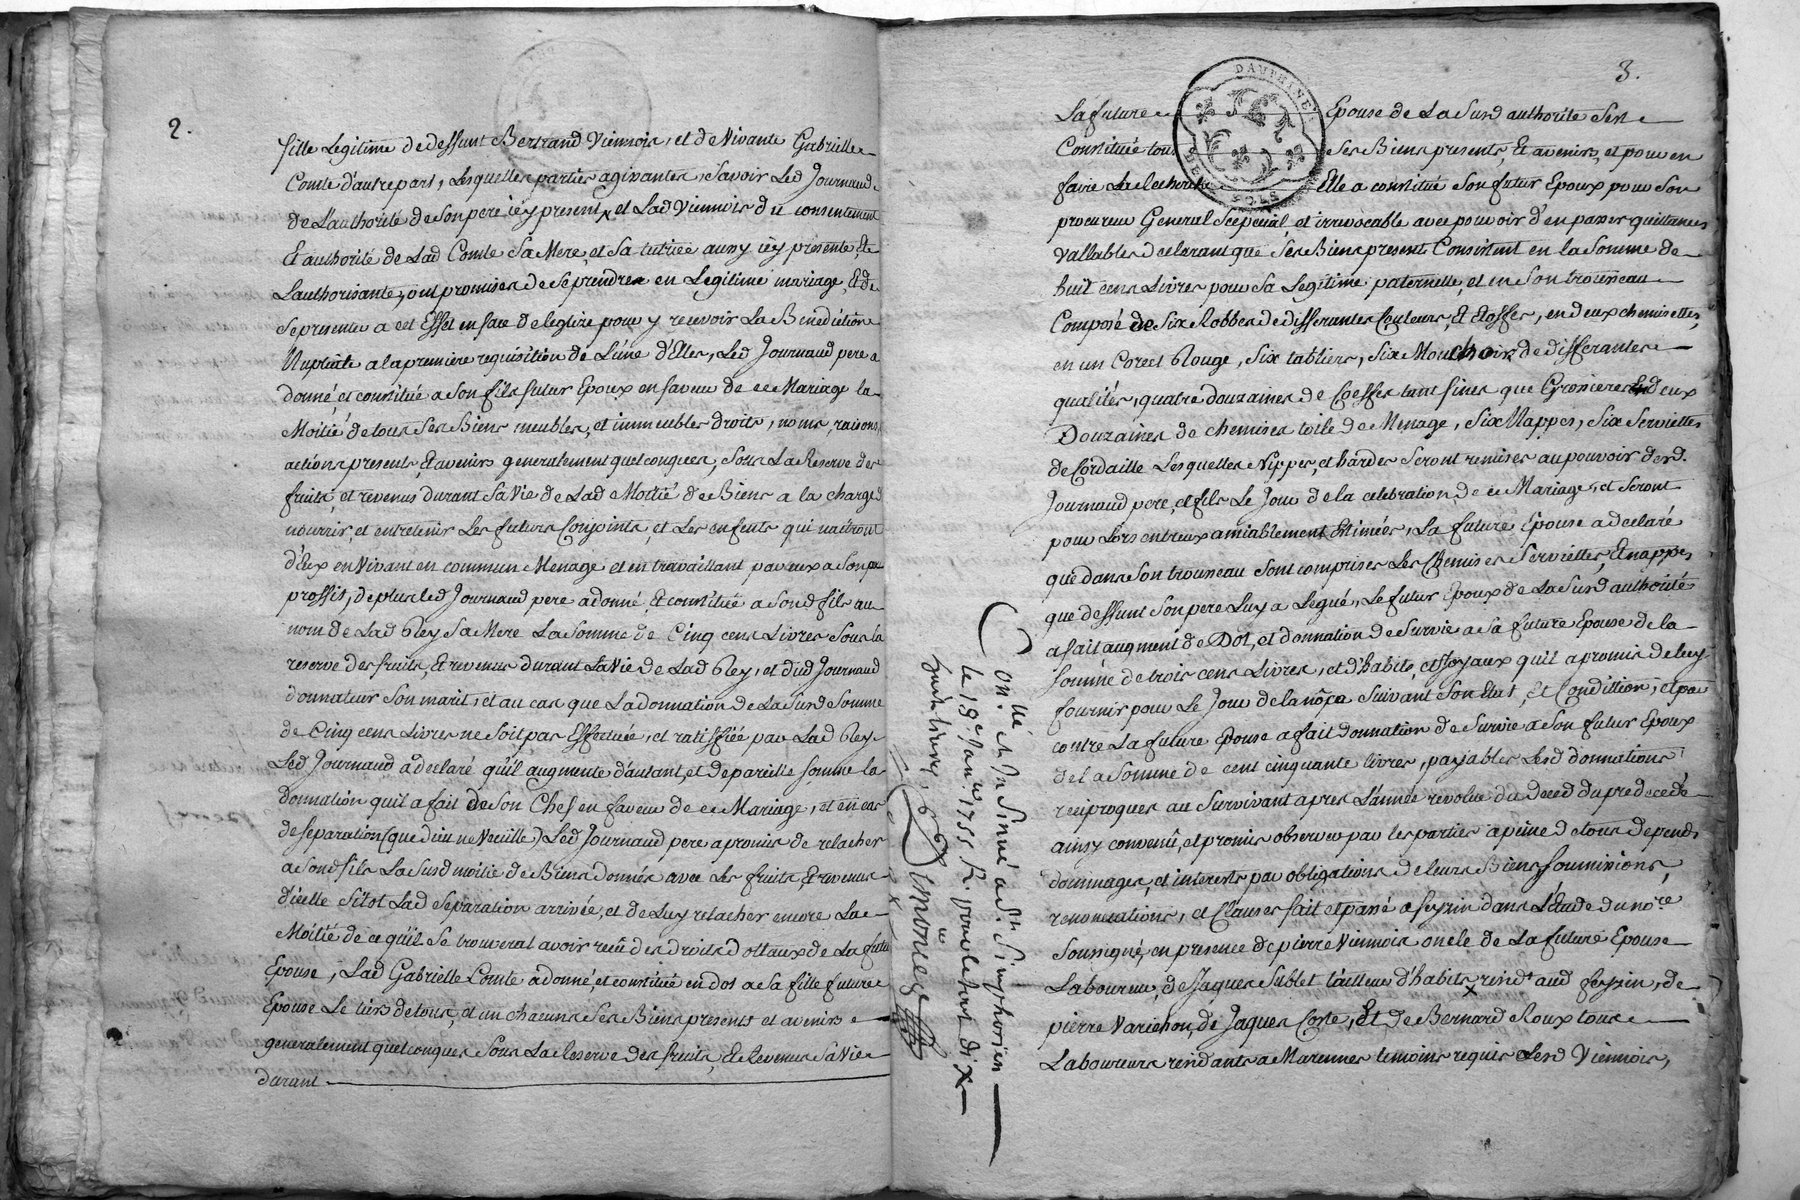 2.
fille Legitime de deffunt Bertrand Viennois, et de Vivante Gabrielle
Comte d'autre part, Lesquelles parties agissantes, Savoir Led Journaud
de L'authorité de son pere icy present, et Lad Viennois du consentement
Et authorité de Lad Comte Sa Mere, et Sa tutrice aussy icy presente, Et
L'authorisante, ont promis de se prendre en Legitime mariage, Et de
se presenter a cet Effet en face de leglise pour y recevoir La Benediction
Nuptiale a la premiere requisition de L'une d'Elles, Led Journaud pere a
donné, et constitué a Son fils futur Epoux en faveur de ce Mariage la
Moitié de tous Ses Biens meubles, et immeubles droits, noms, raisons,
actions presents, Et avenirs generalement quelconques, Sous La Reserve des
fruits, et revenus durant Sa Vie de Lad Moitié de Biens a la charge d
nourrir, et entretenir Les futurs Conjoints, et Les enfents qui naitront
d'Eux en Vivant en commun Menage et en travaillant par eux a Son
proffit, de plus led Journaud pere a donné, Et constitué a Sond fils au
nom de Lad Rey Sa Mere La Somme de Cinq cent Livres Sous la
reserve des fruits, Et revenus durant La Vie de Lad Rey, et dud Journaud
donnateur Son marit, et au cas que La donnation de La Susd Somme
de Cinq cens Livres ne Soit pas Effectuée, et ratiffiée par Lad Rey
Led Journaud a declaré qu'il augmente d'autant, et de pareille Somme la
donnation quil a fait de Son Chef en faveur de ce Mariage, et en cas
de separation (que dieu ne Veuille) Led Journaud pere a promis de relacher
a Sond fils La Susd moitié de Biens donnés avec Les fruits, Et revenus
d'icelle Sitot Lad Separation arrivée, et de Luy relacher encore La
Moitié de ce qu'il Se trouverat avoir reçu des droits dottaux de La future
Epouse, Lad Gabrielle Comte a donné, et constitué en dot a Sa fille future
Epouse Le tiers de tous, et un chacuns Ses Biens presents et avenirs
generalement quelconques Sous La Reserve des fruits, Et Revenus Sa Vie
durant
3.
DAUPHINE
La future Epouse de La Susd authorité S'est
Constituée tous Ses Biens presents, Et avenirs, et pour en
faire La Recherche Elle a constitué Son futur Epoux pour Son
procureur General Special, et irrevocable avec pouvoir d'en passer quittances
Vallables declarant que Ses Biens presents Consistent en la Somme de
huit cens Livres pour Sa Legitime paternelle, et en Son trousseau
Composé de Six Robbes de differantes Couleurs, Et Etoffes, en deux chemisettes,
en un Corcet Rouge, Six tabliers, Six Mouchoirs de differantes
qualités, quatre douzaines de Coeffes tant fines que Grossieres Et deux
Douzaines de chemises toile de Menage, Six Nappes, Six Serviettes
de Cordaille Lesquelles Nippes, et hardes Seront remises au pouvoir desd.
Journaud pere, et fils Le Jour de la celebration de ce Mariage, et Seront
pour Lors entreux amiablement Estimées, La future Epouse a declaré
que dans Son trousseau Sont comprises Les Chemises Serviettes, Et nappes
que deffunt Son pere Luy a Legué, Le futur Epoux de La Susd authorité
a fait augment de Dot, et donnation de Survie a Sa future Epouse de la
Somme de trois cens Livres, et d'habits, et Joyaux qu'il a promis de luy
fournir pour Le Jour de la nôce Suivant Son Etat, Et Condittion, et par
contre La future Epouse a fait donnation de Survie a Son futur Epoux
de la Somme de cent cinquante livres, payables Lesd donnations
reciproques au Survivant apres L'année revolue du deced du predecedé
ainsy convenu, et promis observer par les parties a peine de tous depends
dommages, et interests, par obligations de leurs Biens Soumissions,
renonciations, et Clauses fait et passé a feyzin dans L'Etude du nore
Sousigné, en presence de pierre Viennois oncle de La future Epouse
Laboureur, de Jaques Sublet tailleur d'habits resident aud feyzin, de
pierre Varichon, de Jaques Coste, Et de Bernard Roux tous
Laboureurs residants a Marennes temoins requis Lesd Viennois,
Con.llé et Insinué a St. Simphorien
le 19e Janv. 1755 R. pour le tout dix
huit livres,